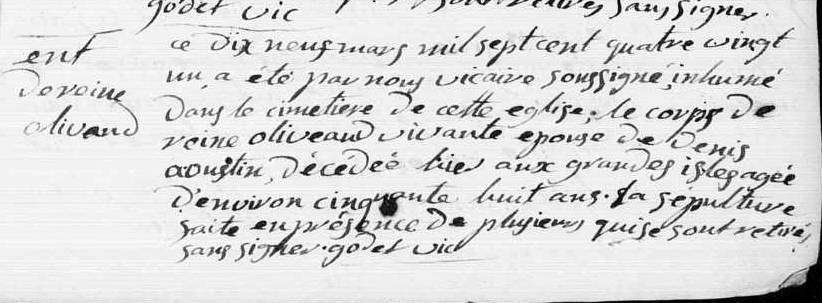 godet vic
sans signer.
ent
de reine
olivaud
ce dix neuf mars mil sept cent quatre vingt
un, a été par nous vicaire soussigné, inhumé
dans le cimetiere de cette eglise, le corps de
reine oliveaud vivante epouse de Denis
aoustin, décédée hier aux grandes isles agée
d'environ cinquante huit ans. sa sepulture
faite en présence de plusieurs qui se sont retirés
sans signer. godet vic